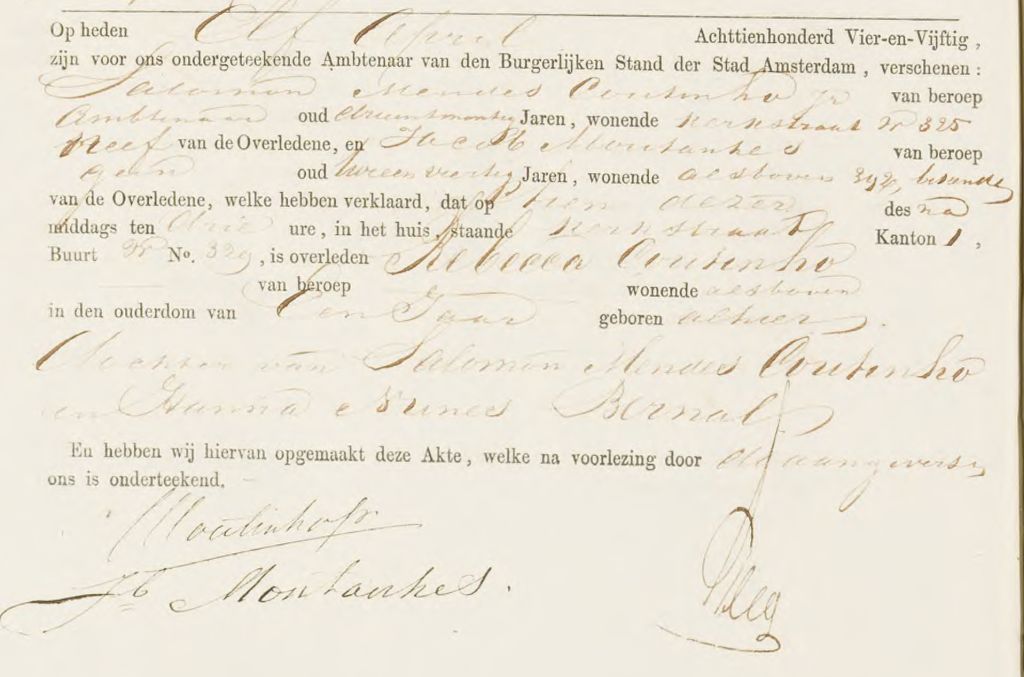 Op heden Elf April Achttienhonderd Vier-en-Vijftig,
zijn voor ons ondergeteekende Ambtenaar van den Burgerlijken Stand der Stad Amsterdam, verschenen:
Salomon Mendes Coutinho jr van beroep
Ambtenaar oud drieentwintig Jaren, wonende Kerkstraat 325
Neef van de Overledene, en Jacob Montanhes van beroep
geen oud tweeenveertig Jaren, wonende alsboven 392, bekende
van de Overledene, welke hebben verklaard, dat op tien dezer des na
middags ten drie ure, in het huis, staande Kerkstraat Kanton 1,
Buurt No. 329, is overleden Rebecca Coutinho
van beroep wonende alsboven
in den ouderdom van Een Jaar geboren alhier.
dochter van Salomon Mendes Coutinho
en Hanna Nunes Bernal
En hebben wij hiervan opgemaakt deze Akte, welke na voorlezing door de aangevers en
ons is onderteekend.
Coutinho jr
Jb Montanhes.